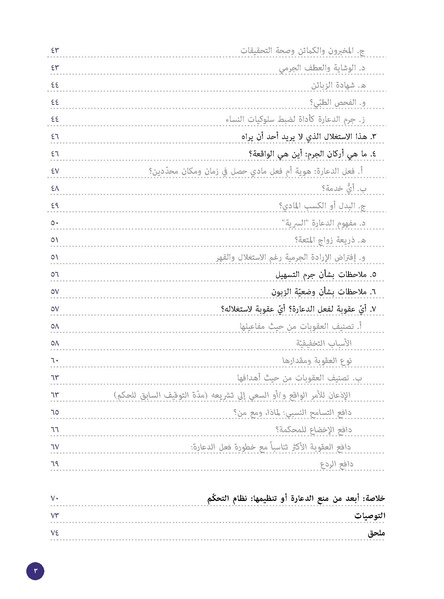 ج. المخبرون والكمائن وصحة التحقيقات ٤٣
د. الوشاية والعطف الجرمي ٤٣
هـ. شهادة الزبائن ٤٤
و. الفحص الطبّي؟ ٤٤
ز. جرم الدعارة كأداة لضبط سلوكيات النساء ٤٤
٣. هذا الاستغلال الذي لا يريد أحد أن يراه ٤٦
٤. ما هي أركان الجرم: أين هي الواقعة؟ ٤٦
أ. فعل الدعارة: هوية أم فعل مادي حصل في زمان ومكان محدّدين؟ ٤٧
ب. أيُّ خدمة؟ ٤٨
ج. البدل أو الكسب المادي؟ ٤٩
د. مفهوم الدعارة "السرية" ٥٠
هـ. ذريعة زواج المتعة؟ ٥١
و. إفتراض الإرادة الجرمية رغم الاستغلال والقهر ٥١
٥. ملاحظات بشأن جرم التسهيل ٥٦
٦. ملاحظات بشأن وضعيّة الزبون ٥٧
٧. أيّ عقوبة لفعل الدعارة؟ أيّ عقوبة لاستغلاله؟ ٥٧
أ. تصنيف العقوبات من حيث مفاعيلها ٥٨
الأسباب التخفيفيّة ٥٨
نوع العقوبة ومقدارها ٦٠
ب. تصنيف العقوبات من حيث أهدافها ٦٣
الإذعان للأمر الواقع و/أو السعي إلى تشريعه (مدّة التوقيف السابق للحكم) ٦٣
دافع التسامح النسبي: لماذا، ومع من؟ ٦٥
دافع الإخضاع للمحكمة؟ ٦٦
دافع العقوبة الأكثر تناسباً مع خطورة فعل الدعارة: ٦٧
دافع الردع ٦٩
خلاصة: أبعد من منع الدعارة أو تنظيمها: نظام التحكّم ٧٠
التوصيات ٧٣
ملحق ٧٤
٣